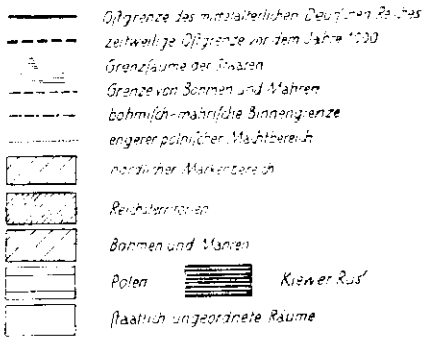 Oſtgrenze des mittelalterlichen Deutſchen Reiches
zeitweilige Oſtgrenze vor dem Jahre 1000
Grenzſäume der Slawen
Grenze von Böhmen und Mähren
böhmiſch-mähriſche Binnengrenze
engerer polniſcher Machtbereich
nördlicher Markenbereich
Reichsterritorien
Böhmen und Mähren
Polen Kiewer Rus'
ſtaatlich ungeordnete Räume